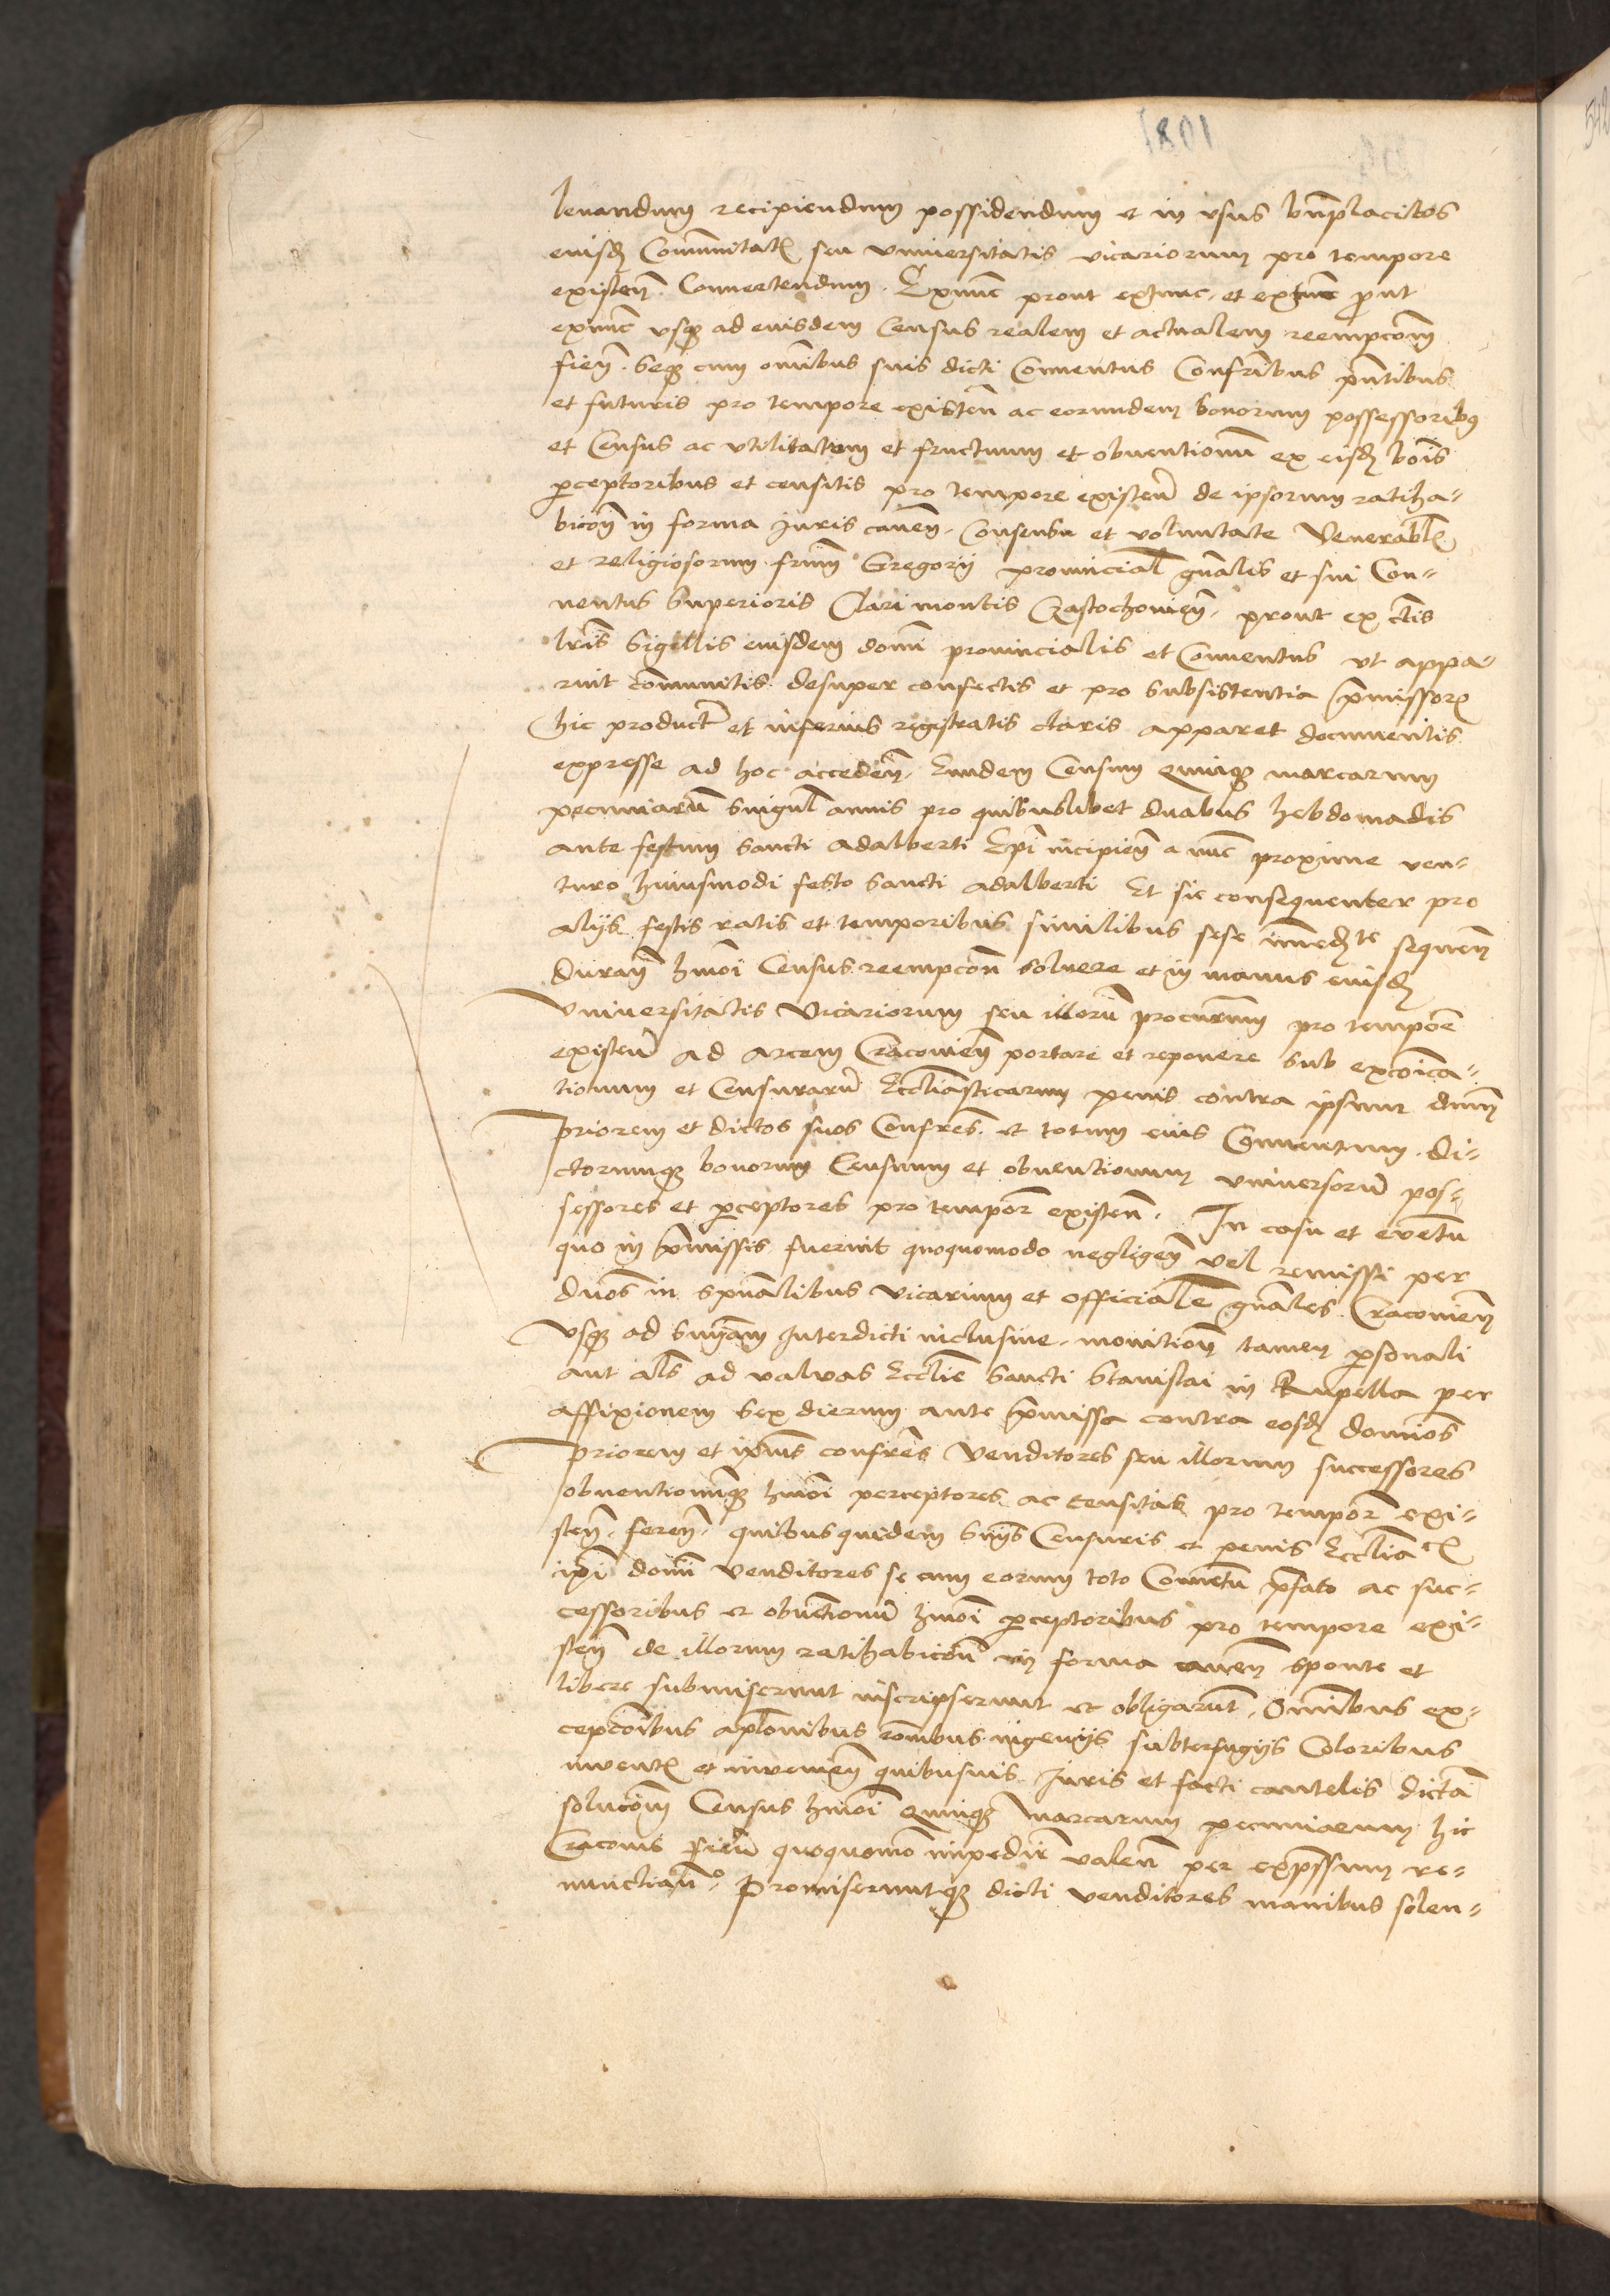 1801
levandum recipiendum possidendum et in usus bn̄placitos
eiusd̨ Communitat̨ seu Universitatis vicariorum pro tempore
existen̄. Convertendum. Exnunc prout extunc, et extunc prout
exnunc usq̨ ad eiusdem Census realem et actualem reempcōm
fien̄. Seq̨ cum omībus suis dicti Conventus Confrībus pn̄tibus
et futuris pro tempore existen̄ ac eorundem bonorum possessorib9
et Census ac utilitatum et fructuum et obventionum ex eisd̨ bonis
perceptoribus et censitis pro tempore existen̄ de ipsorum ratiha-
bicōn in forma Iuris caven̄. Consensu et voluntate Venerabl̨
et religiosorum frūm Gregorii provincial̄ gn̄alis et sui Con-
ventus Superioris Clari montis Czastochovien̄. prout ex ctis
lrīs Sigillis eiusdem domī provincialis et Conventus ut appa-
ruit communitis desuper confectis et pro subsistentia p̄missor̨
hic product̨ et inferius registratis claris apparet documentis
expresse ad hoc acceden̄. Eundem Censum Quinq̨ marcarum
pecuniarum singul̄ annis pro quibuslibet duabus hebdomadis
ante festum Sancti Adalberti Epī incipien̄ a nunc proxime ven-
turo huiusmodi festo Sancti Adalberti Et sic consequenter pro
alijs festis ratis et temporibus similibus sese īmed̨te sequen̄
Duran̄ hmōi Census reempcōn solvere et in manus eiusd̨
Universitatis Vicariorum seu illorū procurūm pro tempore
existen̄ ad arcem Cracovien̄ portare et reponere sub excōica-
tionum et Censurarū Eccl̄iasticarum penis contra ipsum dnūm
priorem et dictos suos Confres̄. et totum eius Conventum. di-
ctorumq̨ bonorum Censuum et obventionum universorū pos-
sessores et perceptores pro tempor̄ existen̄. In casu et eventu
quo in p̄missis fuerint quoquomodo negligen̄ vel remissi per
dnōs in spūalibus vicarium et officialē gn̄ales Cracovien̄
Usq̨ ad Sniām Interdicti inclusive, monition̄ tamen personali
aut als̄ ad valvas Eccl̄ie Sancti Stanislai in Rupella per
affixionem sex dierum ante p̄missa contra eosd̨ dominos
priorem et ipīus confrēs Venditores seu illorum successores
obventionumq̨ hmōi perceptores ac censitas pro tempor̄ exi-
sten̄. feren̄. quibusquidem Snijs Censuris et penis Eccl̄iacis
ipī domī Venditores se cum eorum toto Conventu p̄fato ac suc-
cessoribus et obventionū hmōi perceptoribus pro tempore exi-
sten̄ de illorum ratihabicōn in forma caven̄ sponte et
libere submiserunt inscripserunt et obligarunt, Omnibus ex-
cepcōibus apl̄onibus rōnibus ingenijs subterfugijs Coloribus
invent̨ et invenien̄ quibusvis Iuris et facti cautelis dictā
solucōm Census hmōi Quinq̨ Marcarum pecuniarum hic
Cracovie fien̄ quoquomō impedir̄ valen̄ per exp̄ssum re-
nunctian̄. Promiseruntq̨ dicti venditores manibus solen-